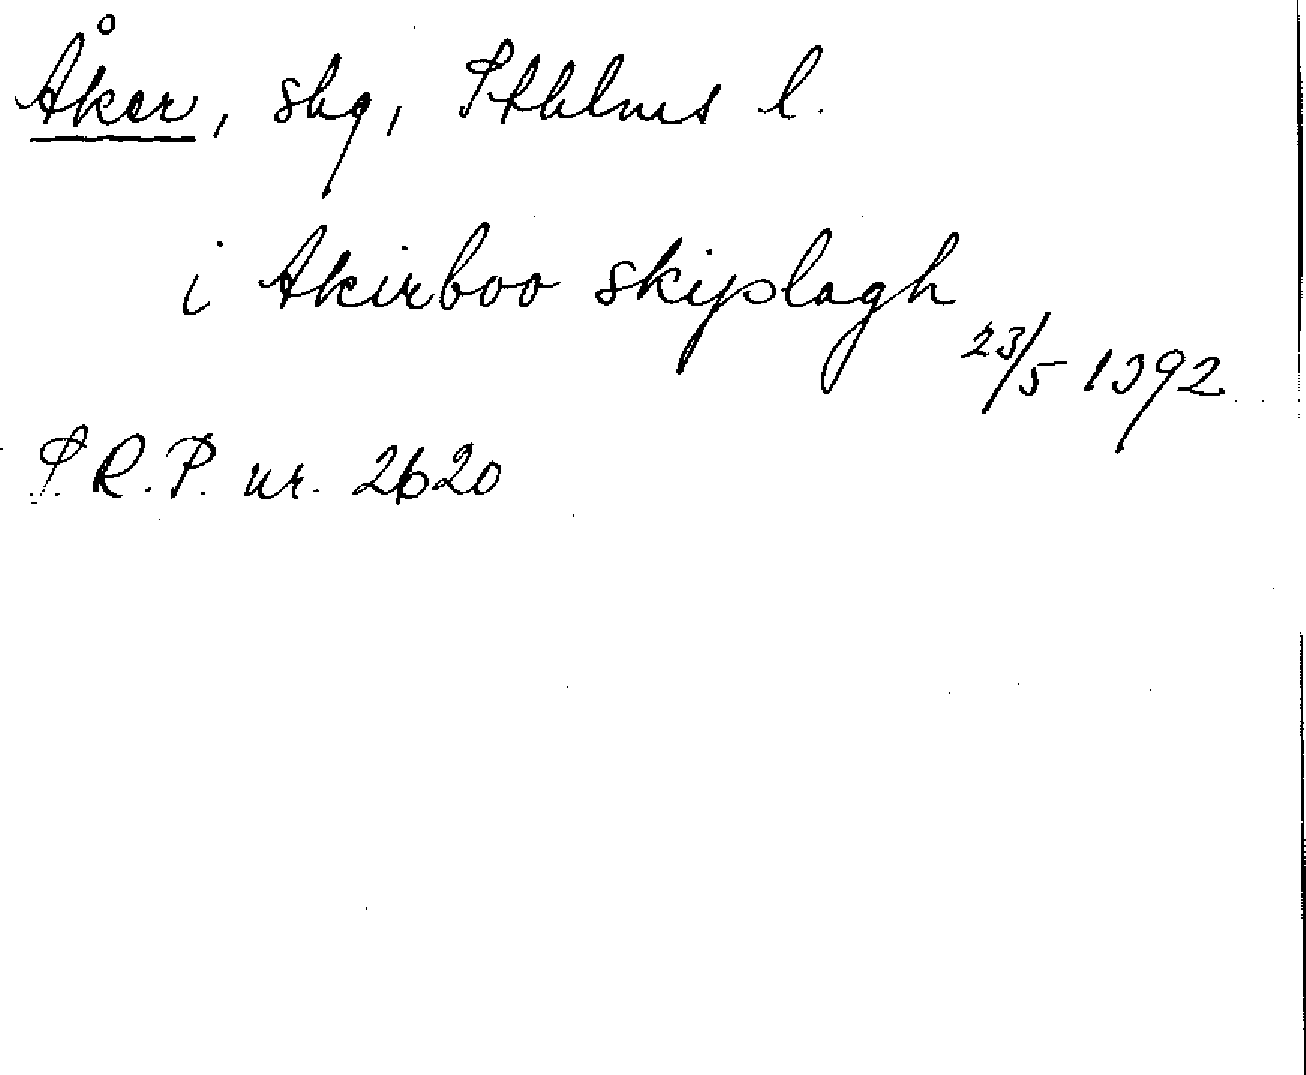 Åker, skg, Sthlms l.
i Akirboo skiplagh
23/5 1392
S.R.P. nr. 2620